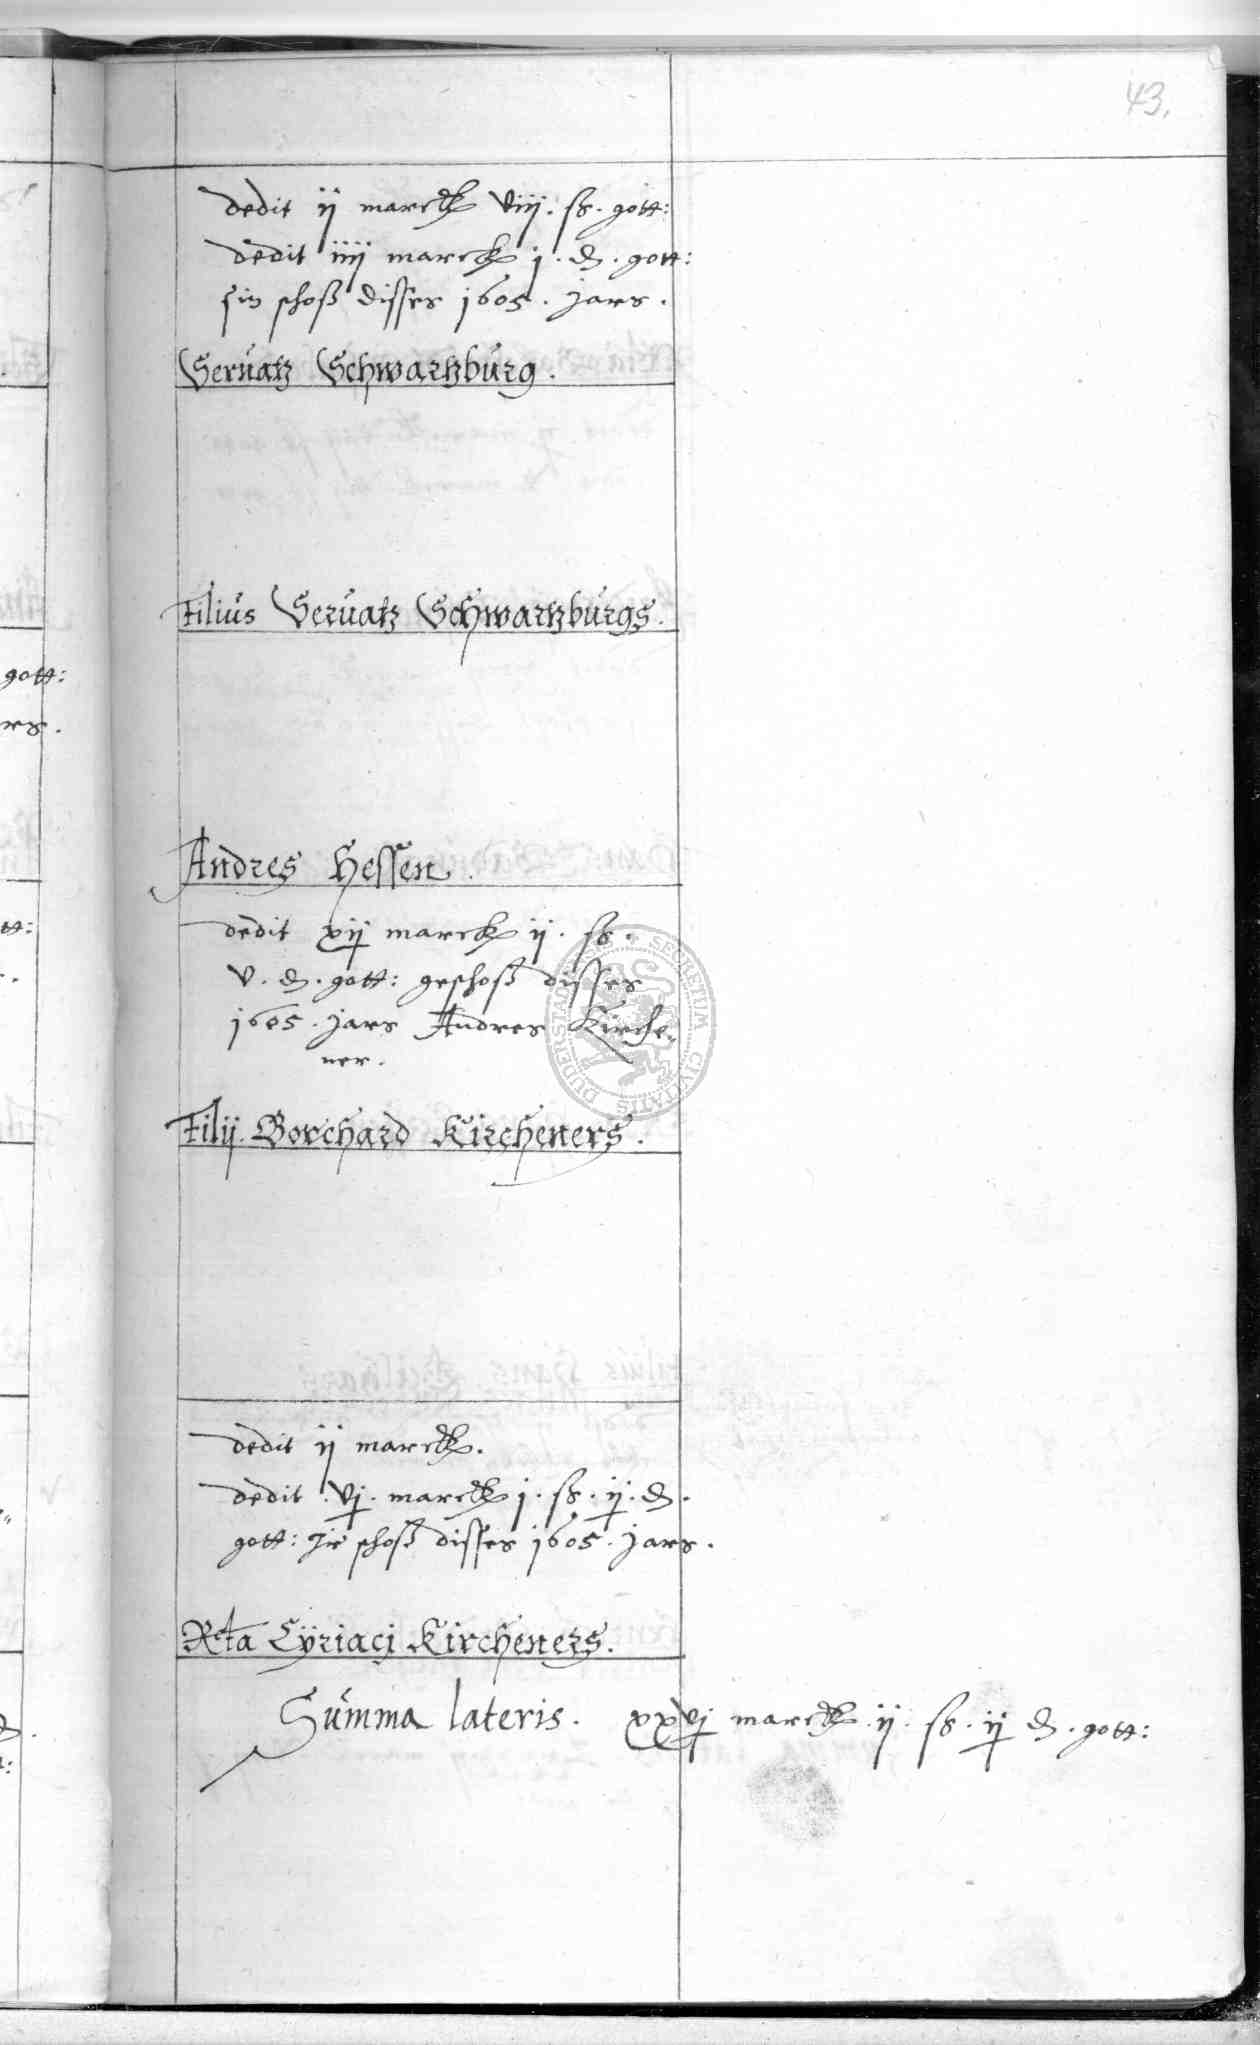 43.
dedit ij marck viij. ß. gott:
dedit iiij marck j. d. gott:
sin schoß disses 1605. jars.
Servatz Schwartzburg.
Filius Servatz Schwartzburgs.
Andres Hessen.
dedit xij marck ij. ß.
v. d. gott: geschoß disses
1605. jars Andres Kirche„
ner.
Filij Borchard Kircheners.
dedit ij marck.
dedit vj. marck j. ß. ij. d.
gott: Jr schoß disses 1605. jars.
Rcta Cÿriacj Kircheners.
Summa lateris. xxvj marck ij. ß. ij d. gott:
gott:
rs.
tt:
SECRETUM CIVITATIS DUDERSTADENSIS